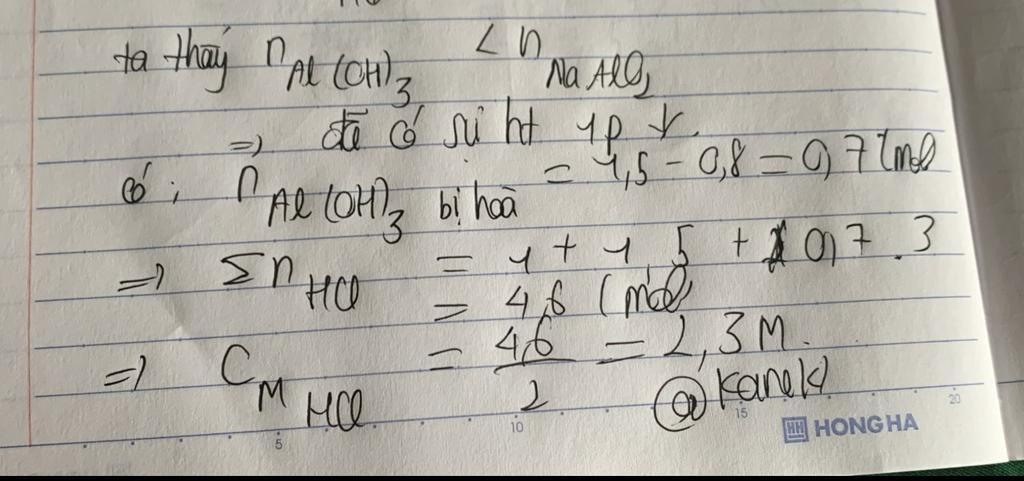 ta thấy n Al(OH)3 < n NaAlO2
=> đã có sự ht 1p ↓.
Có: n Al(OH)3 bị hoà = 1,5 - 0,8 = 0,7 (mol
=> Σn HCl = 1 + 1,5 + 0,7.3
= 4,6 (mol)
=> CM HCl = 4,6/2 = 2,3M.
@Kaneki
5 10 15 20
HH HONG HA